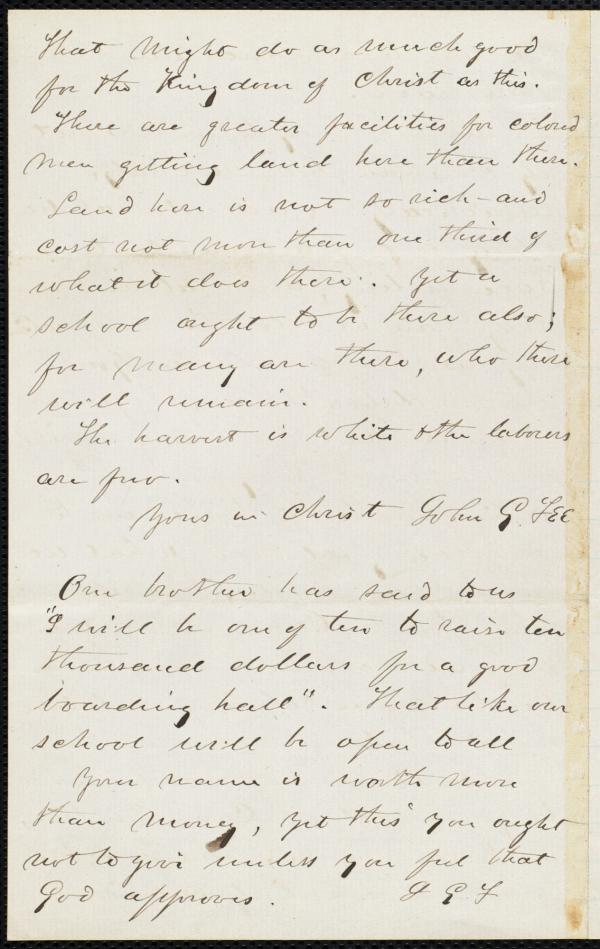 that might do as much good
for the Kingdom of Christ as this.
There are greater facilities for colored
men getting land here than there.
Land here is not so rich - and
cost not more than one third of
what it does there. Yet a
school ought to be there also;
for many are there, who there
will remain.
The harvest is white & the laborers
are few.
Yours in Christ John G. FEE
One brother has said to us
"I will be one of ten to raise ten
thousand dollars for a good
boarding hall". That like our
school will be open to all
Your name is worth more
than money, yet this you ought
not to give unless you feel that
God approves. J G F